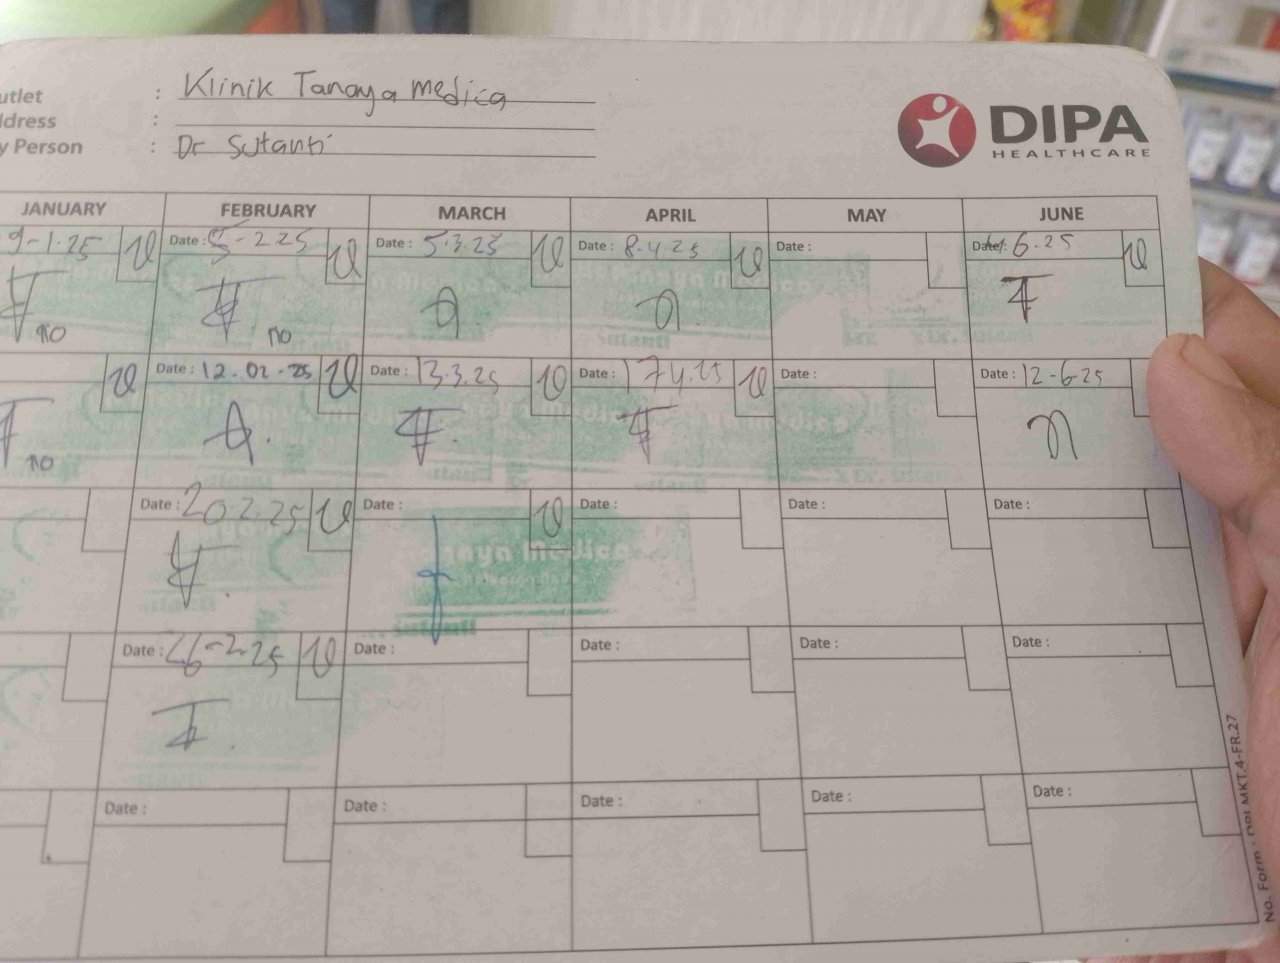 utlet : Klinik Tanaya medica
ddress :
y Person : Dr Sutanti
DIPA
HEALTHCARE
JANUARY FEBRUARY MARCH APRIL MAY JUNE
9-1.25 Date : 5-2 25 Date : 5.3.25 Date : 8.4.25 Date : Date : 6.25
no no
Date : 12.02.25 Date : 13.3.25 Date : 174.25 Date : Date : 12-6-25
no
Date : 202.25 Date : Date : Date : Date :
Date : 26-2-25 Date : Date : Date : Date :
Date : Date : Date : Date : Date :
No. Form : DPI.MKT.4-FR.27